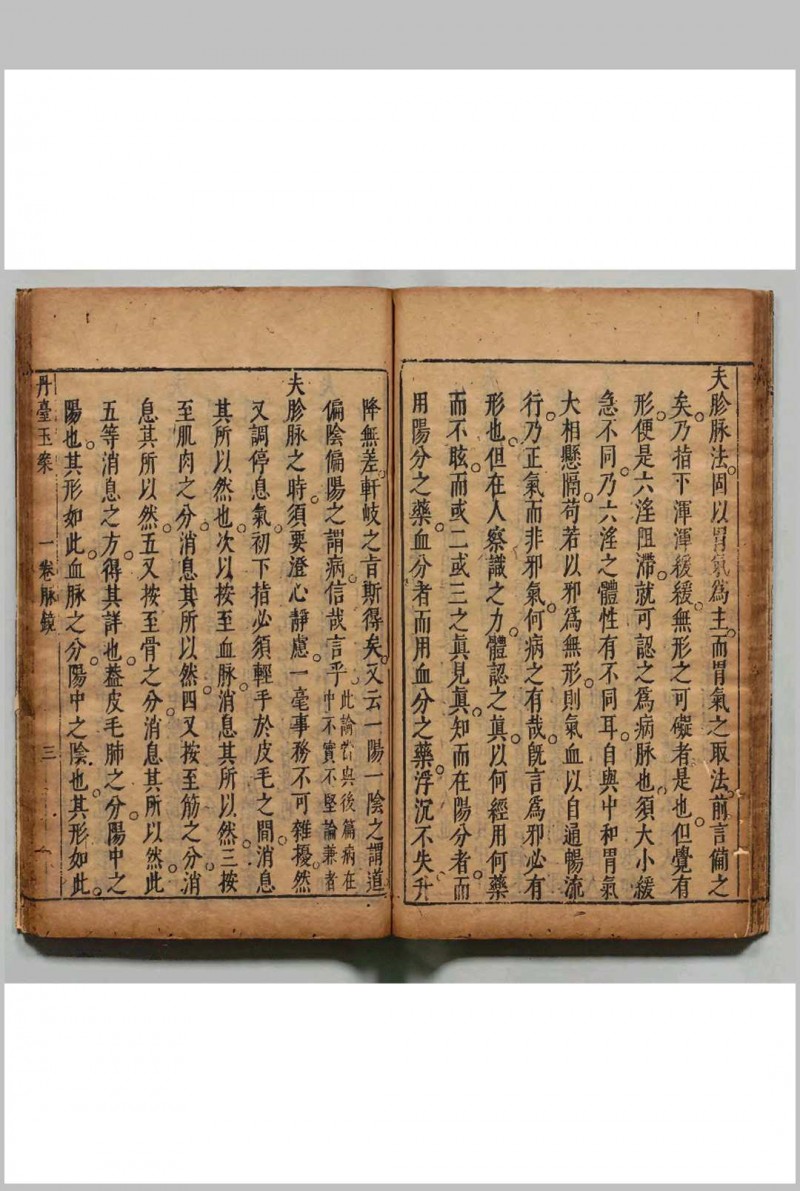 夫胗脉法。固以胃氣爲主。而胃氣之取法。前言備之
矣。乃指下渾渾緩緩。無形之可礙者是也。但覺有
形。便是六淫阻滯。就可認之爲病脉也。須大小緩
急不同。乃六淫之體性有不同耳。自與中和胃氣
大相懸隔。苟若以邪爲無形。則氣血以自通暢流
行。乃正氣而非邪氣。何病之有哉。旣言爲邪必有
形也。但在人察識之力。體認之眞。以何經用何藥
而不眩。而或二或三之眞見眞知。而在陽分者。而
用陽分之藥。血分者而用血分之藥。浮沉不失。升
降無差。軒岐之旨斯得矣。又云一陽一陰之謂道
偏陰偏陽之謂病。信哉言乎。此論當與後篇病在中不實不堅論兼者
夫胗脉之時。須要澄心靜慮。一毫事務不可雜擾。然
又調停息氣。初下指必須輕乎於皮毛之間。消息
其所以然也。次以按至血脉。消息其所以然。三按
至肌肉之分。消息其所以然。四又按至筋之分。消
息其所以然。五又按至骨之分。消息其所以然。此
五等消息之方。得其詳也。蓋皮毛肺之分。陽中之
陽也。其形如此。血脉之分。陽中之陰也。其形如此。
丹臺玉案 一卷脉鏡 三